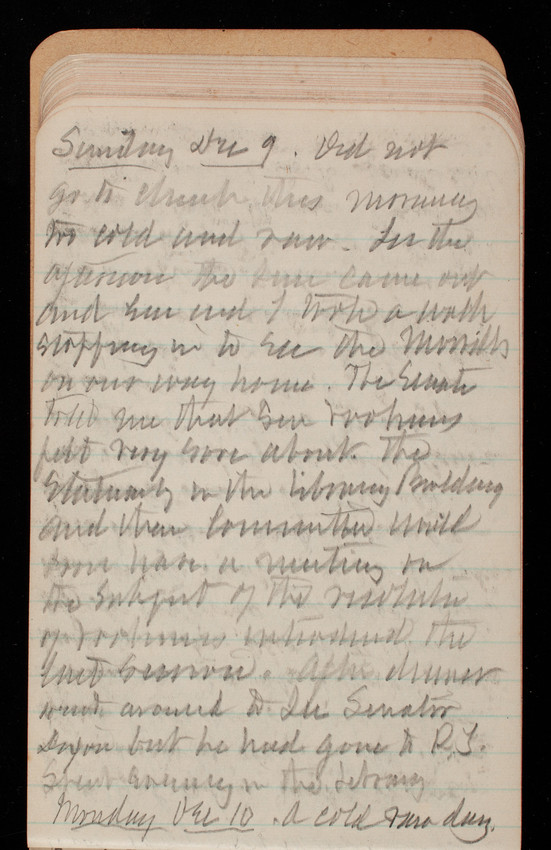 Sunday Dec 9. Did not
go to church this morning
too cold and raw. In the
afternoon the sun came out
and and I took a walk
stopping in to see the Morrills
on our way home. The Senator
told me that Sen Voorhees
felt very sore about the
Statuary in the Library Building
and their Committee would
soon have a meeting on
the subject of the resolution
of Voorhees introduced the
last Session. After dinner
went around to see Senator
Dixon but he had gone to R.I.
Spent evening in the Library
Monday Dec 10. A cold raw day.